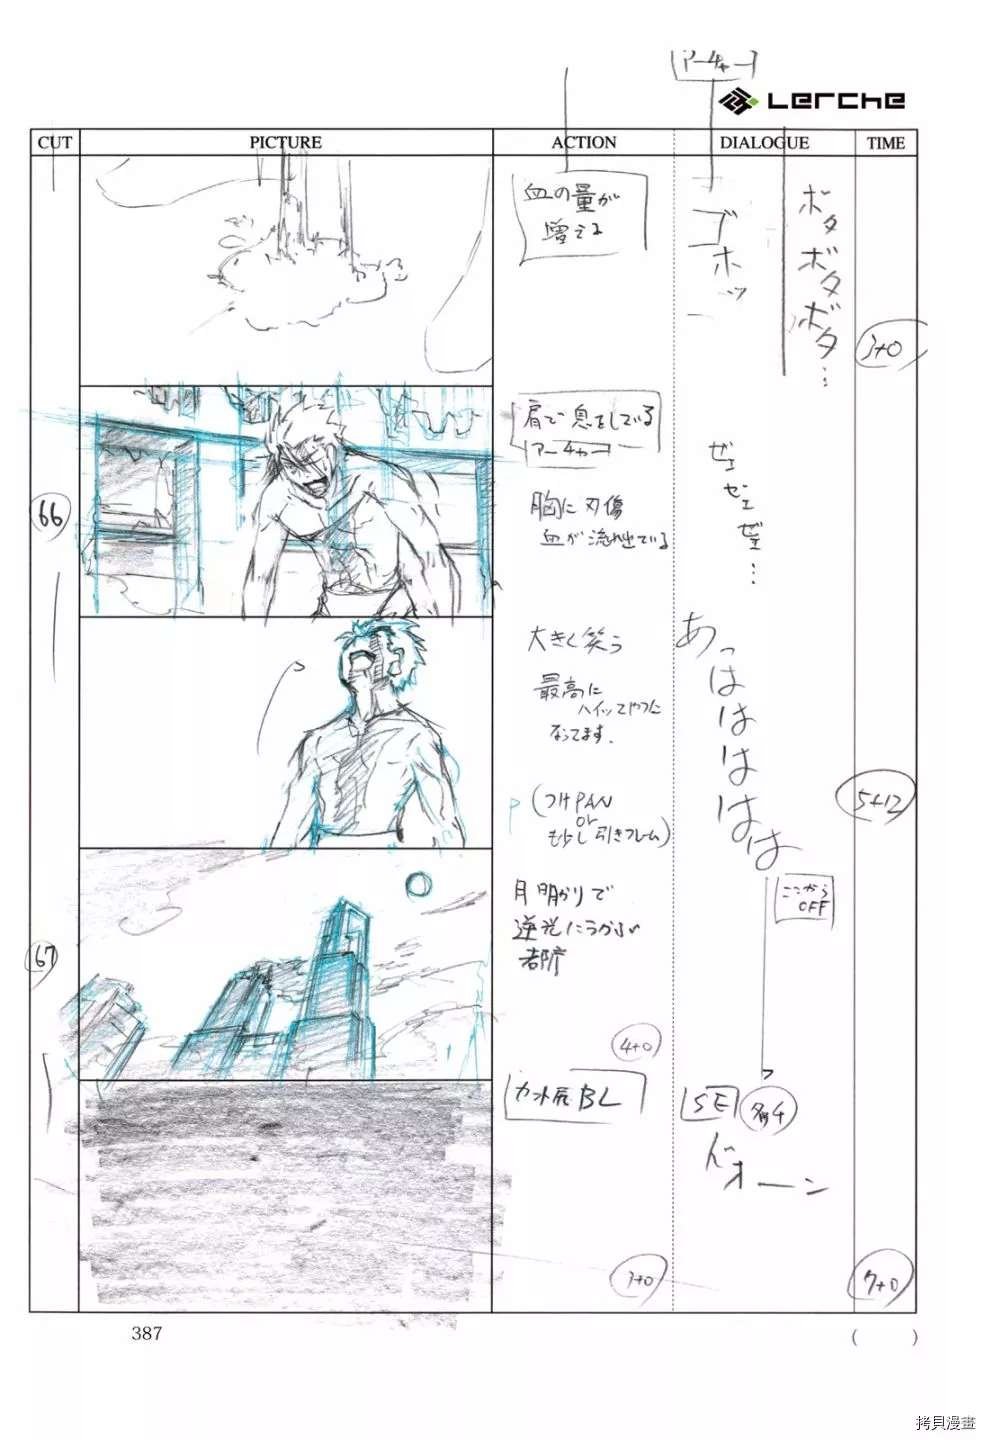 アーチャー
Lerche
CUT PICTURE ACTION DIALOGUE TIME
血の量が
増える
ゴホッ
ボタ
ボタ
ボタ…
3+0
66
肩で息をしている
アーチャー
胸に刃傷
血が流れ出ている
ゼェ
ゼェ
ゼェ…
大きく笑う
最高に
ハイってやつに
なってます。
(つけPAN
or
もう少し引きフレーム)
あっはははははは
5+12
67
月明かりで
逆光にうかぶ
都庁
ここから
OFF
4+0
カット尻BL
SE
ドオーン
3+0
7+0
387
( )
拷貝漫畫